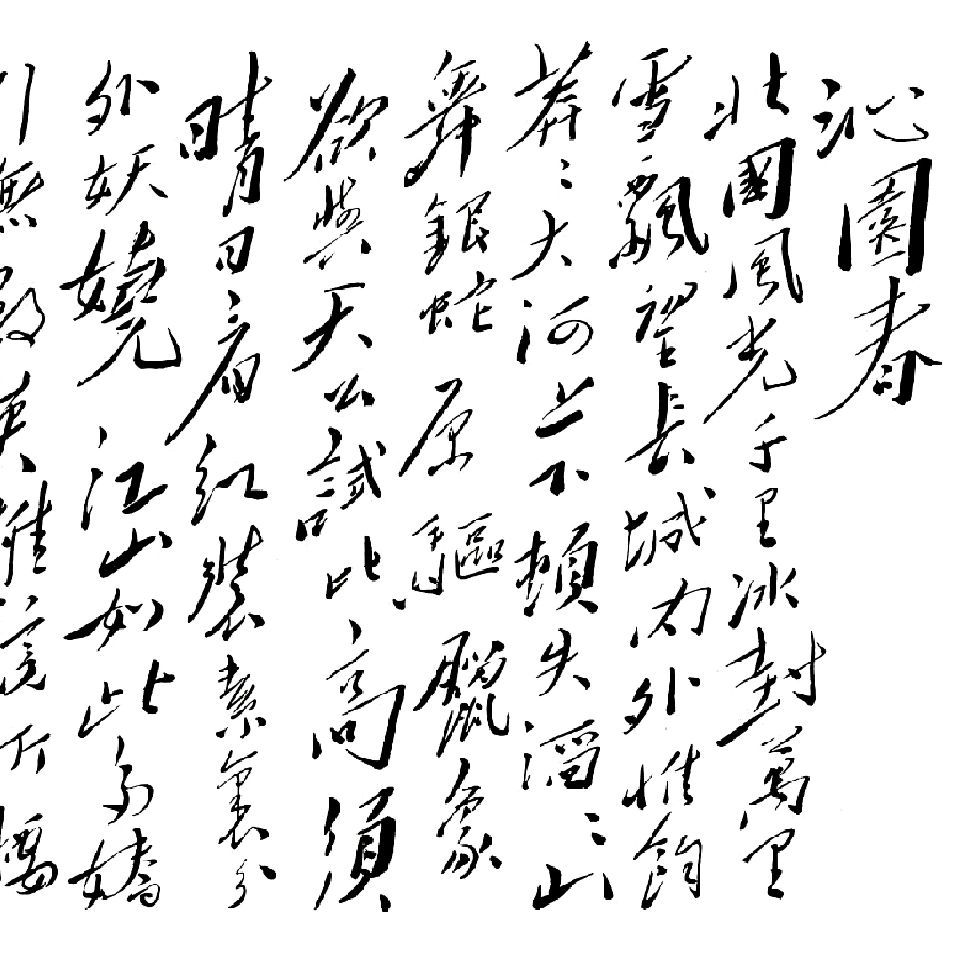 沁園春
北國風光千里冰封萬里
雪飄望長城內外惟餘
莽〻大河上下頓失滔〻山
舞銀蛇原驅臘象
欲與天公試比高須
晴日看紅裝素裹分
外妖嬈江山如此多嬌
引無數英雄競折腰